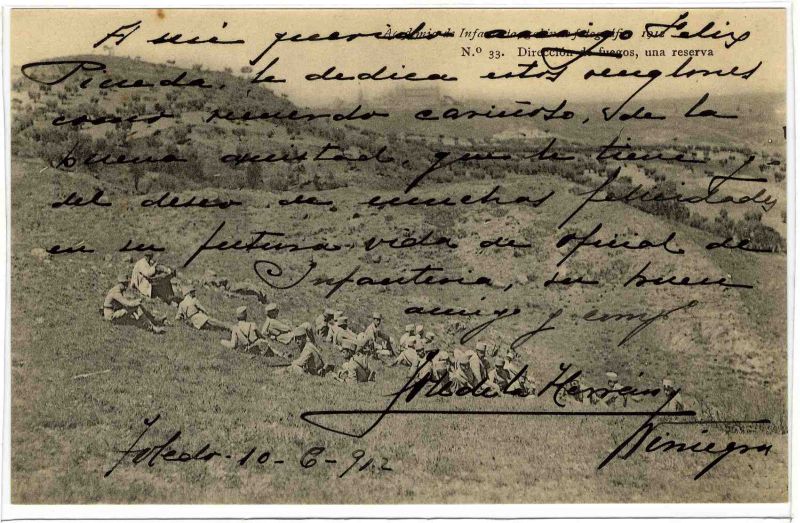 Academia de Infantería 1912
N.º 33. Dirección de fuegos, una reserva
A mi querido amigo Felix
Pineda, le dedica estos renglones
como recuerdo cariñoso, de la
buena amistad, que le tiene y
del deseo de muchas felicidades
en su futura vida de oficial de
Infanteria, su buen
amigo y comp
de la Herrán y
Toledo-10-6-912